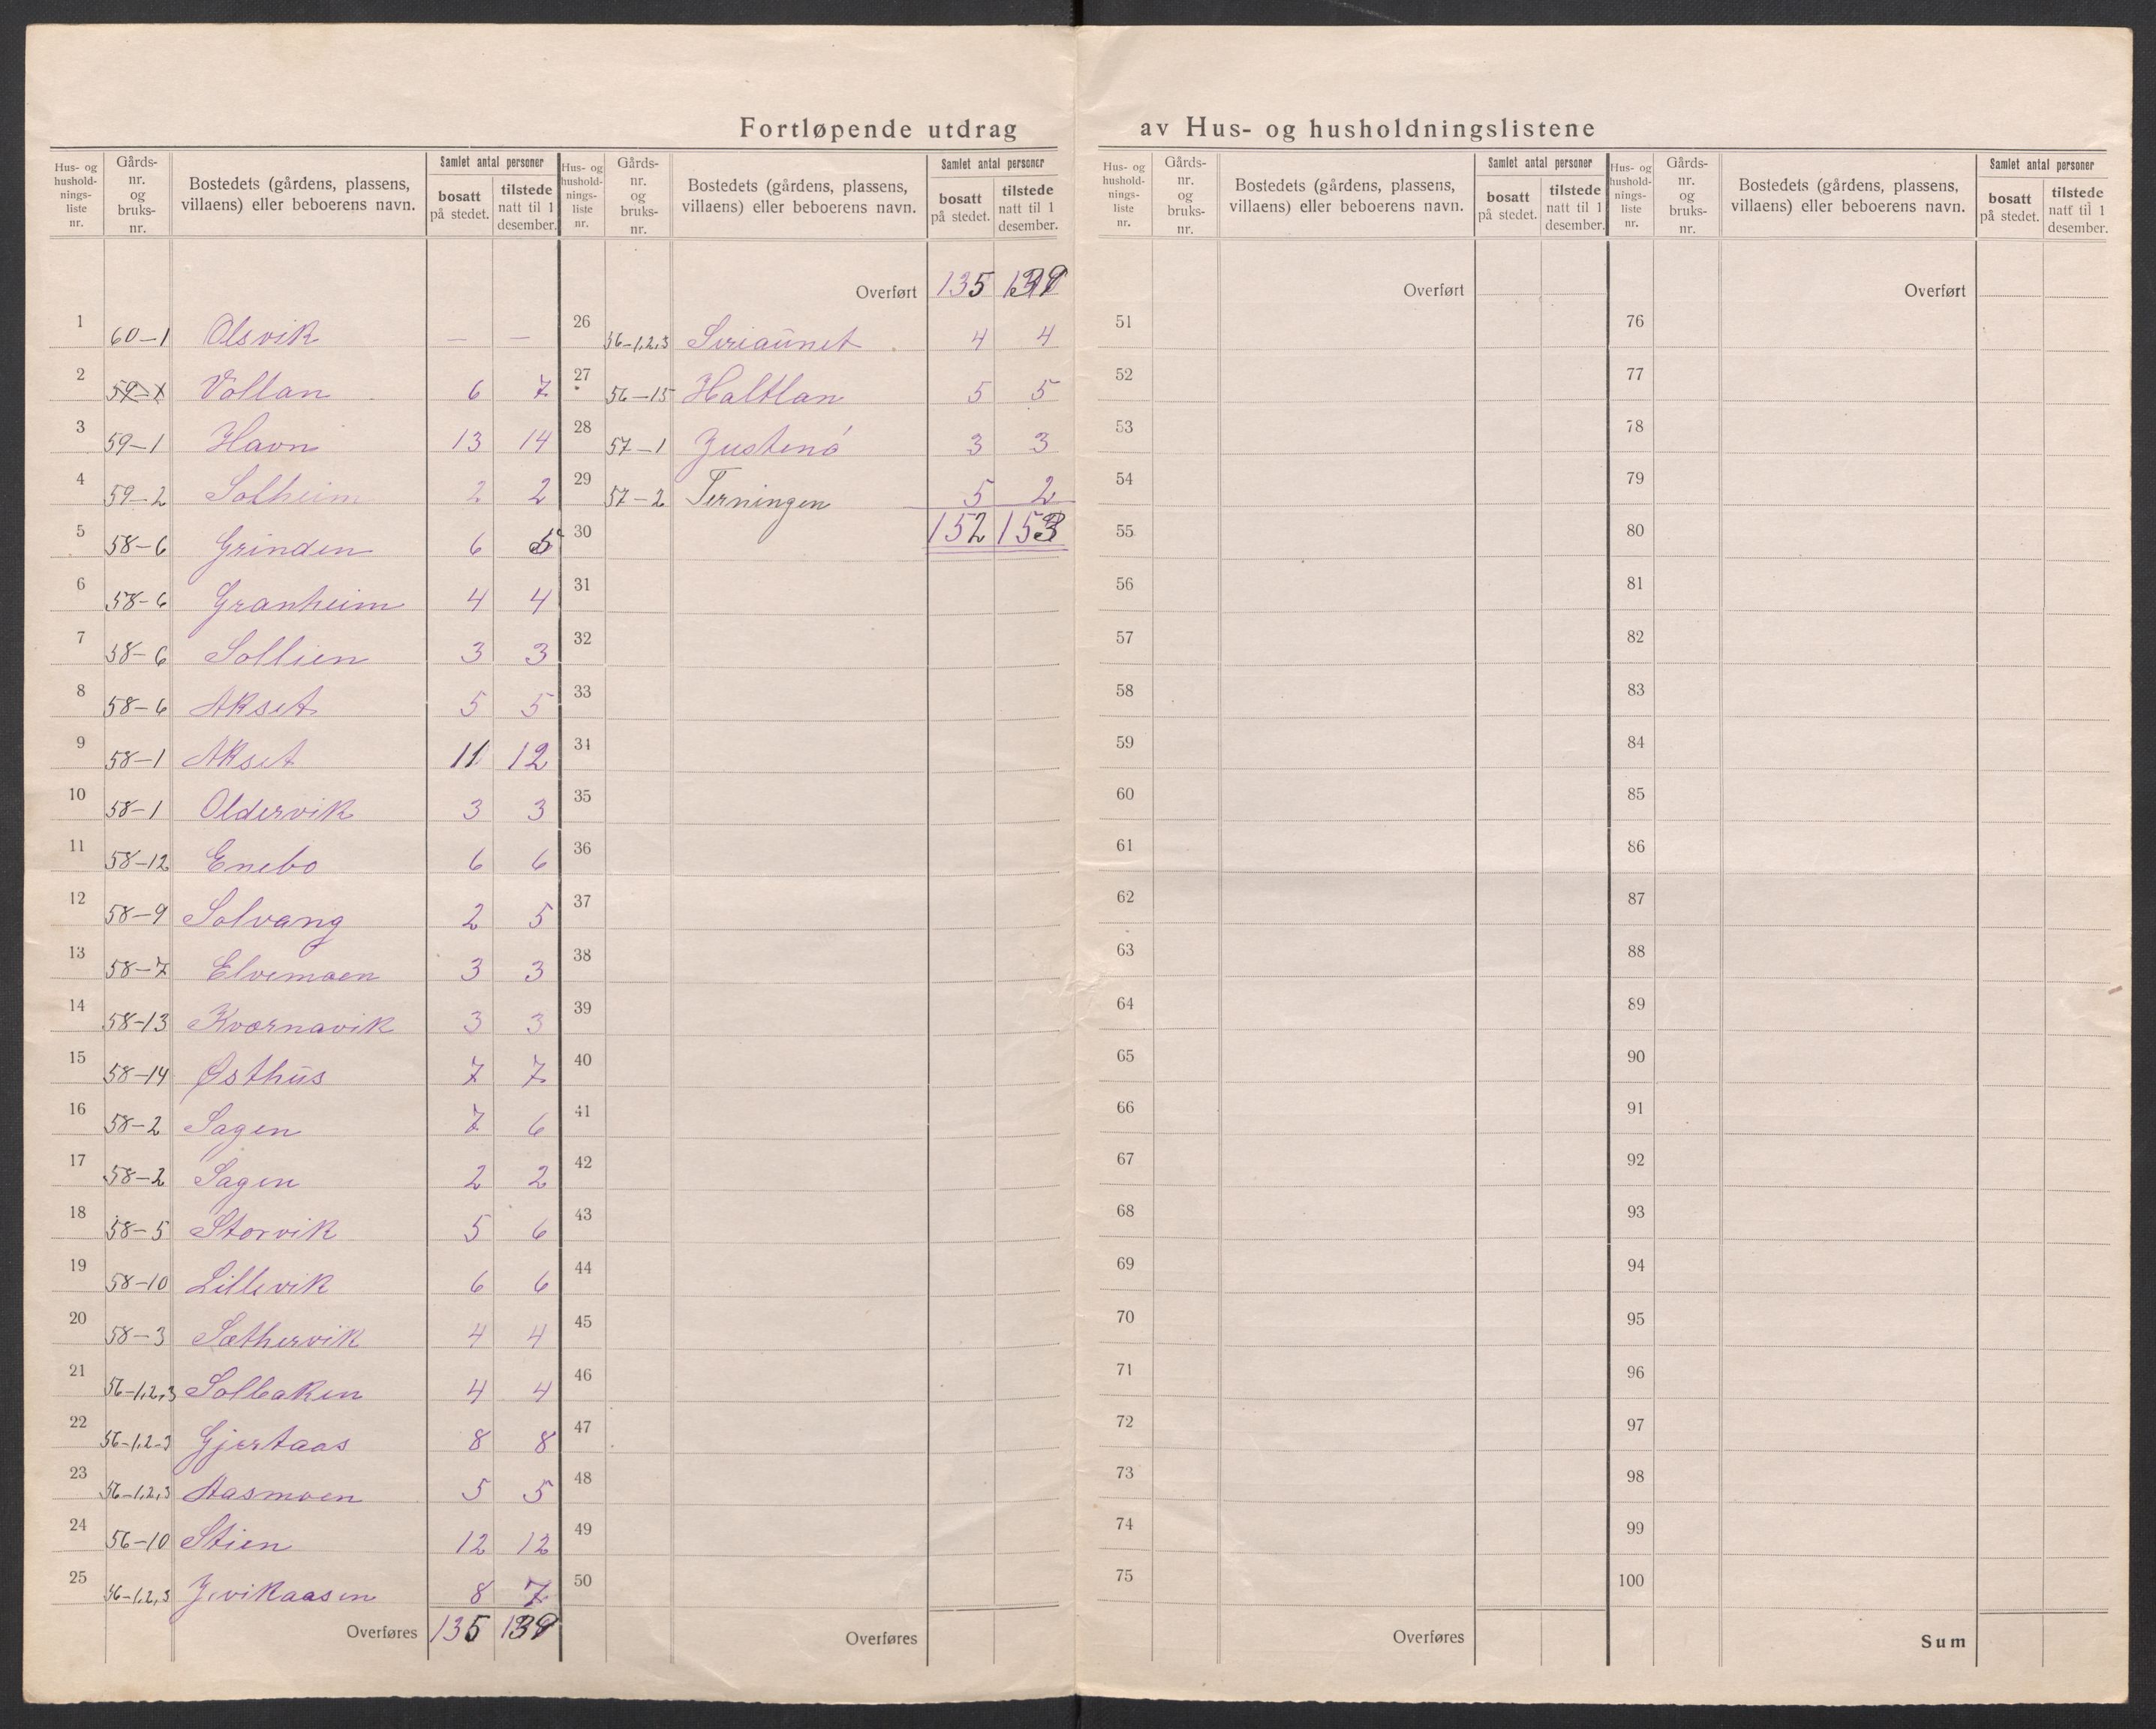 Fortløpende utdrag av Hus- og husholdningslistene
Hus- og husholdningsliste nr. Gårds-nr. og bruks-nr. Bostedets (gårdens, plassens, villaens) eller beboerens navn. Samlet antal personer bosatt på stedet. tilstede natt til 1 desember.
1 60-1 Olsvik — —
2 59-1 Vollan 6 7
3 59-1 Havn 13 14
4 59-2 Solheim 2 2
5 58-6 Grinden 6 5
6 58-6 Granheim 4 4
7 58-6 Sollien 3 3
8 58-6 Akset 5 5
9 58-1 Akset 11 12
10 58-1 Oldervik 3 3
11 58-12 Enebo 6 6
12 58-9 Solvang 2 5
13 58-7 Elvemoen 3 3
14 58-13 Kvernavik 3 3
15 58-14 Østhus 7 7
16 58-2 Sagen 7 6
17 58-2 Sagen 2 2
18 58-5 Storvik 5 6
19 58-10 Lillevik 6 6
20 58-3 Sæthervik 4 4
21 56-1,2,3 Solbaken 4 4
22 56-1,2-3 Gjertaas 8 8
23 56-1,2,3 Aasmoen 5 5
24 56-10 Stien 12 12
25 56-1,2,3 Jevikaasen 8 7
Overføres 135 139
Hus- og husholdningsliste nr. Gårds-nr. og bruks-nr. Bostedets (gårdens, plassens, villaens) eller beboerens navn. Samlet antal personer bosatt på stedet. tilstede natt til 1 desember.
Overført 135 139
26 56-1,2,3 Siriaunet 4 4
27 56-15 Haltlan 5 5
28 57-1 Justenö 3 3
29 57-2 Terningen 5 2
30 152 153
31
32
33
34
35
36
37
38
39
40
41
42
43
44
45
46
47
48
49
50
Overføres
Hus- og husholdningsliste nr. Gårds-nr. og bruks-nr. Bostedets (gårdens, plassens, villaens) eller beboerens navn. Samlet antal personer bosatt på stedet. tilstede natt til 1 desember.
Overført
51
52
53
54
55
56
57
58
59
60
61
62
63
64
65
66
67
68
69
70
71
72
73
74
75
Overføres
Hus- og husholdningsliste nr. Gårds-nr. og bruks-nr. Bostedets (gårdens, plassens, villaens) eller beboerens navn. Samlet antal personer bosatt på stedet. tilstede natt til 1 desember.
Overført
76
77
78
79
80
81
82
83
84
85
86
87
88
89
90
91
92
93
94
95
96
97
98
99
100
Sum